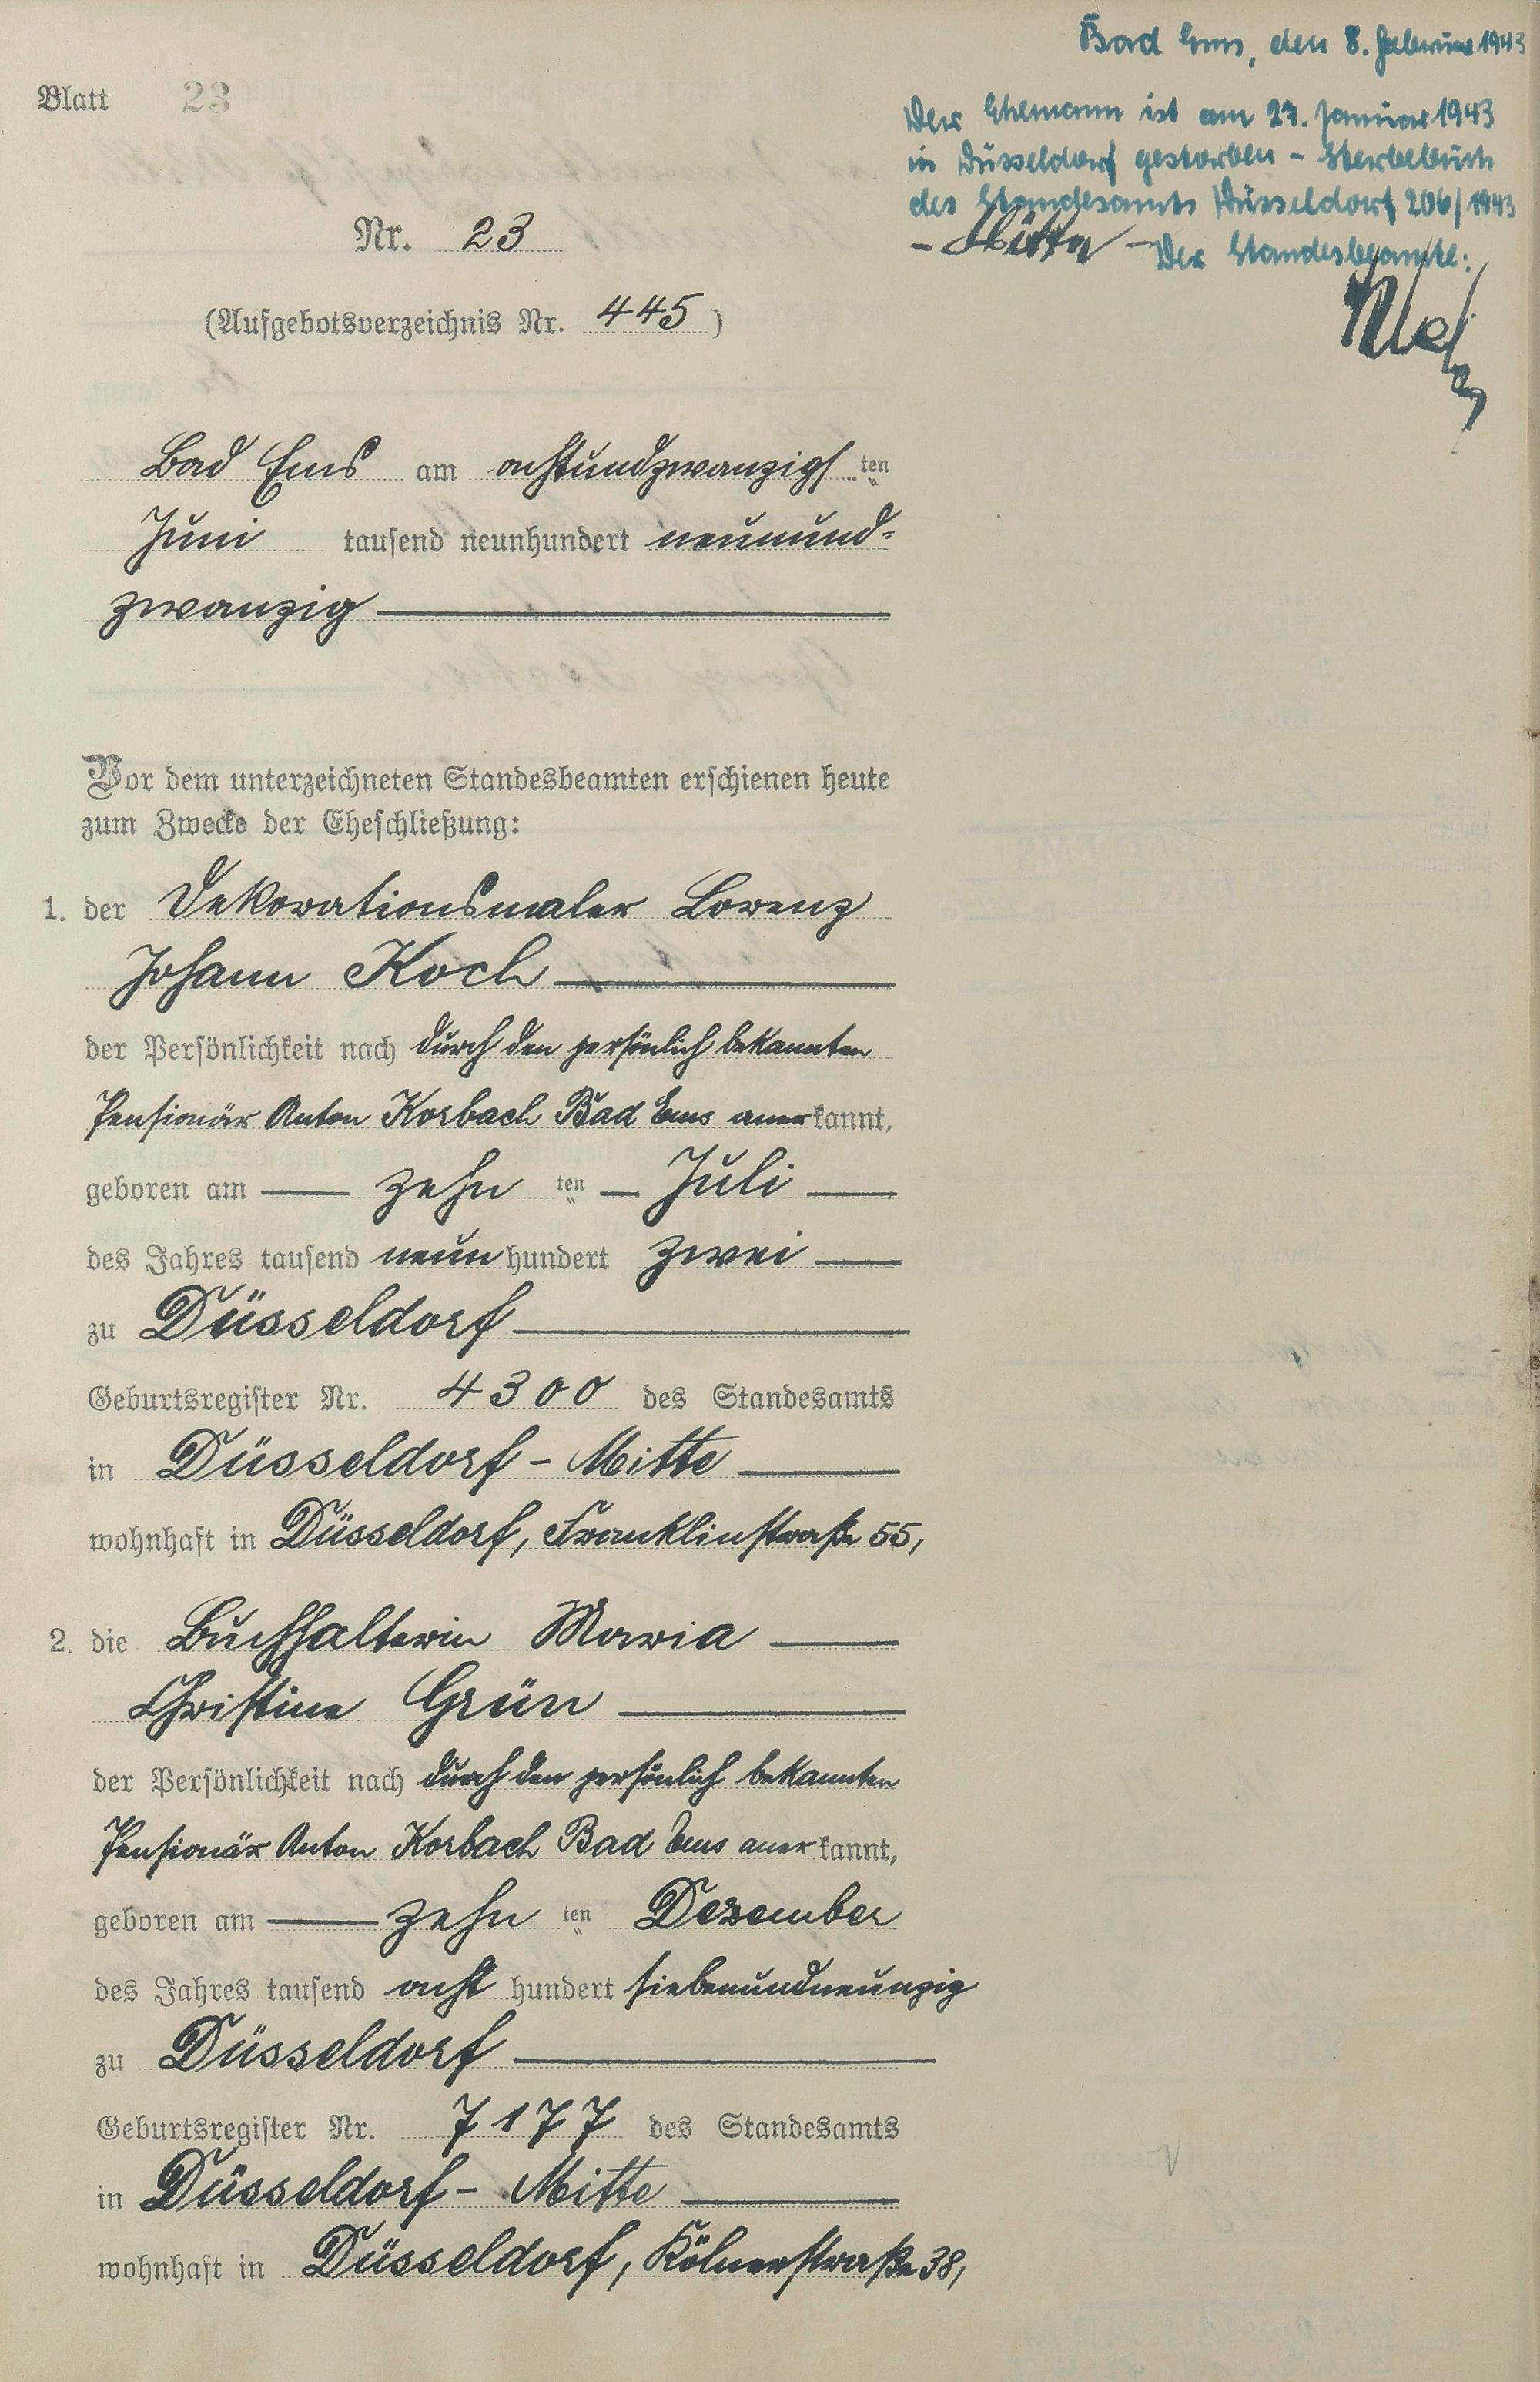 Bad Ems, den 8. Februar 1943
Blatt 23
Der Ehemann ist am 27. Januar 1943
in Düsseldorf gestorben - Sterbebuch
des Standesamts Düsseldorf 206/1943
- Mitte - Der Standesbeamte:
Nr. 23
(Aufgebotsverzeichnis Nr. 445)
Bad Ems am achtundzwanzigsten
Juni tausend neunhundert neunund-
zwanzig
Vor dem unterzeichneten Standesbeamten erschienen heute
zum Zwecke der Eheschließung:
1. der Dekorationsmaler Lorenz
Johann Koch
der Persönlichkeit nach durch den persönlich bekannten
Pensionär Anton Korbach Bad Ems anerkannt,
geboren am zehn ten Juli
des Jahres tausend neunhundert zwei
zu Düsseldorf
Geburtsregister Nr. 4300 des Standesamts
in Düsseldorf - Mitte
wohnhaft in Düsseldorf, Franklinstraße 55,
2. die Buchhalterin Maria
Christine Grün
der Persönlichkeit nach durch den persönlich bekannten
Pensionär Anton Korbach Bad Ems anerkannt,
geboren am zehn ten Dezember
des Jahres tausend acht hundert siebenundneunzig
zu Düsseldorf
Geburtsregister Nr. 7177 des Standesamts
in Düsseldorf - Mitte
wohnhaft in Düsseldorf, Kölnerstraße 38,